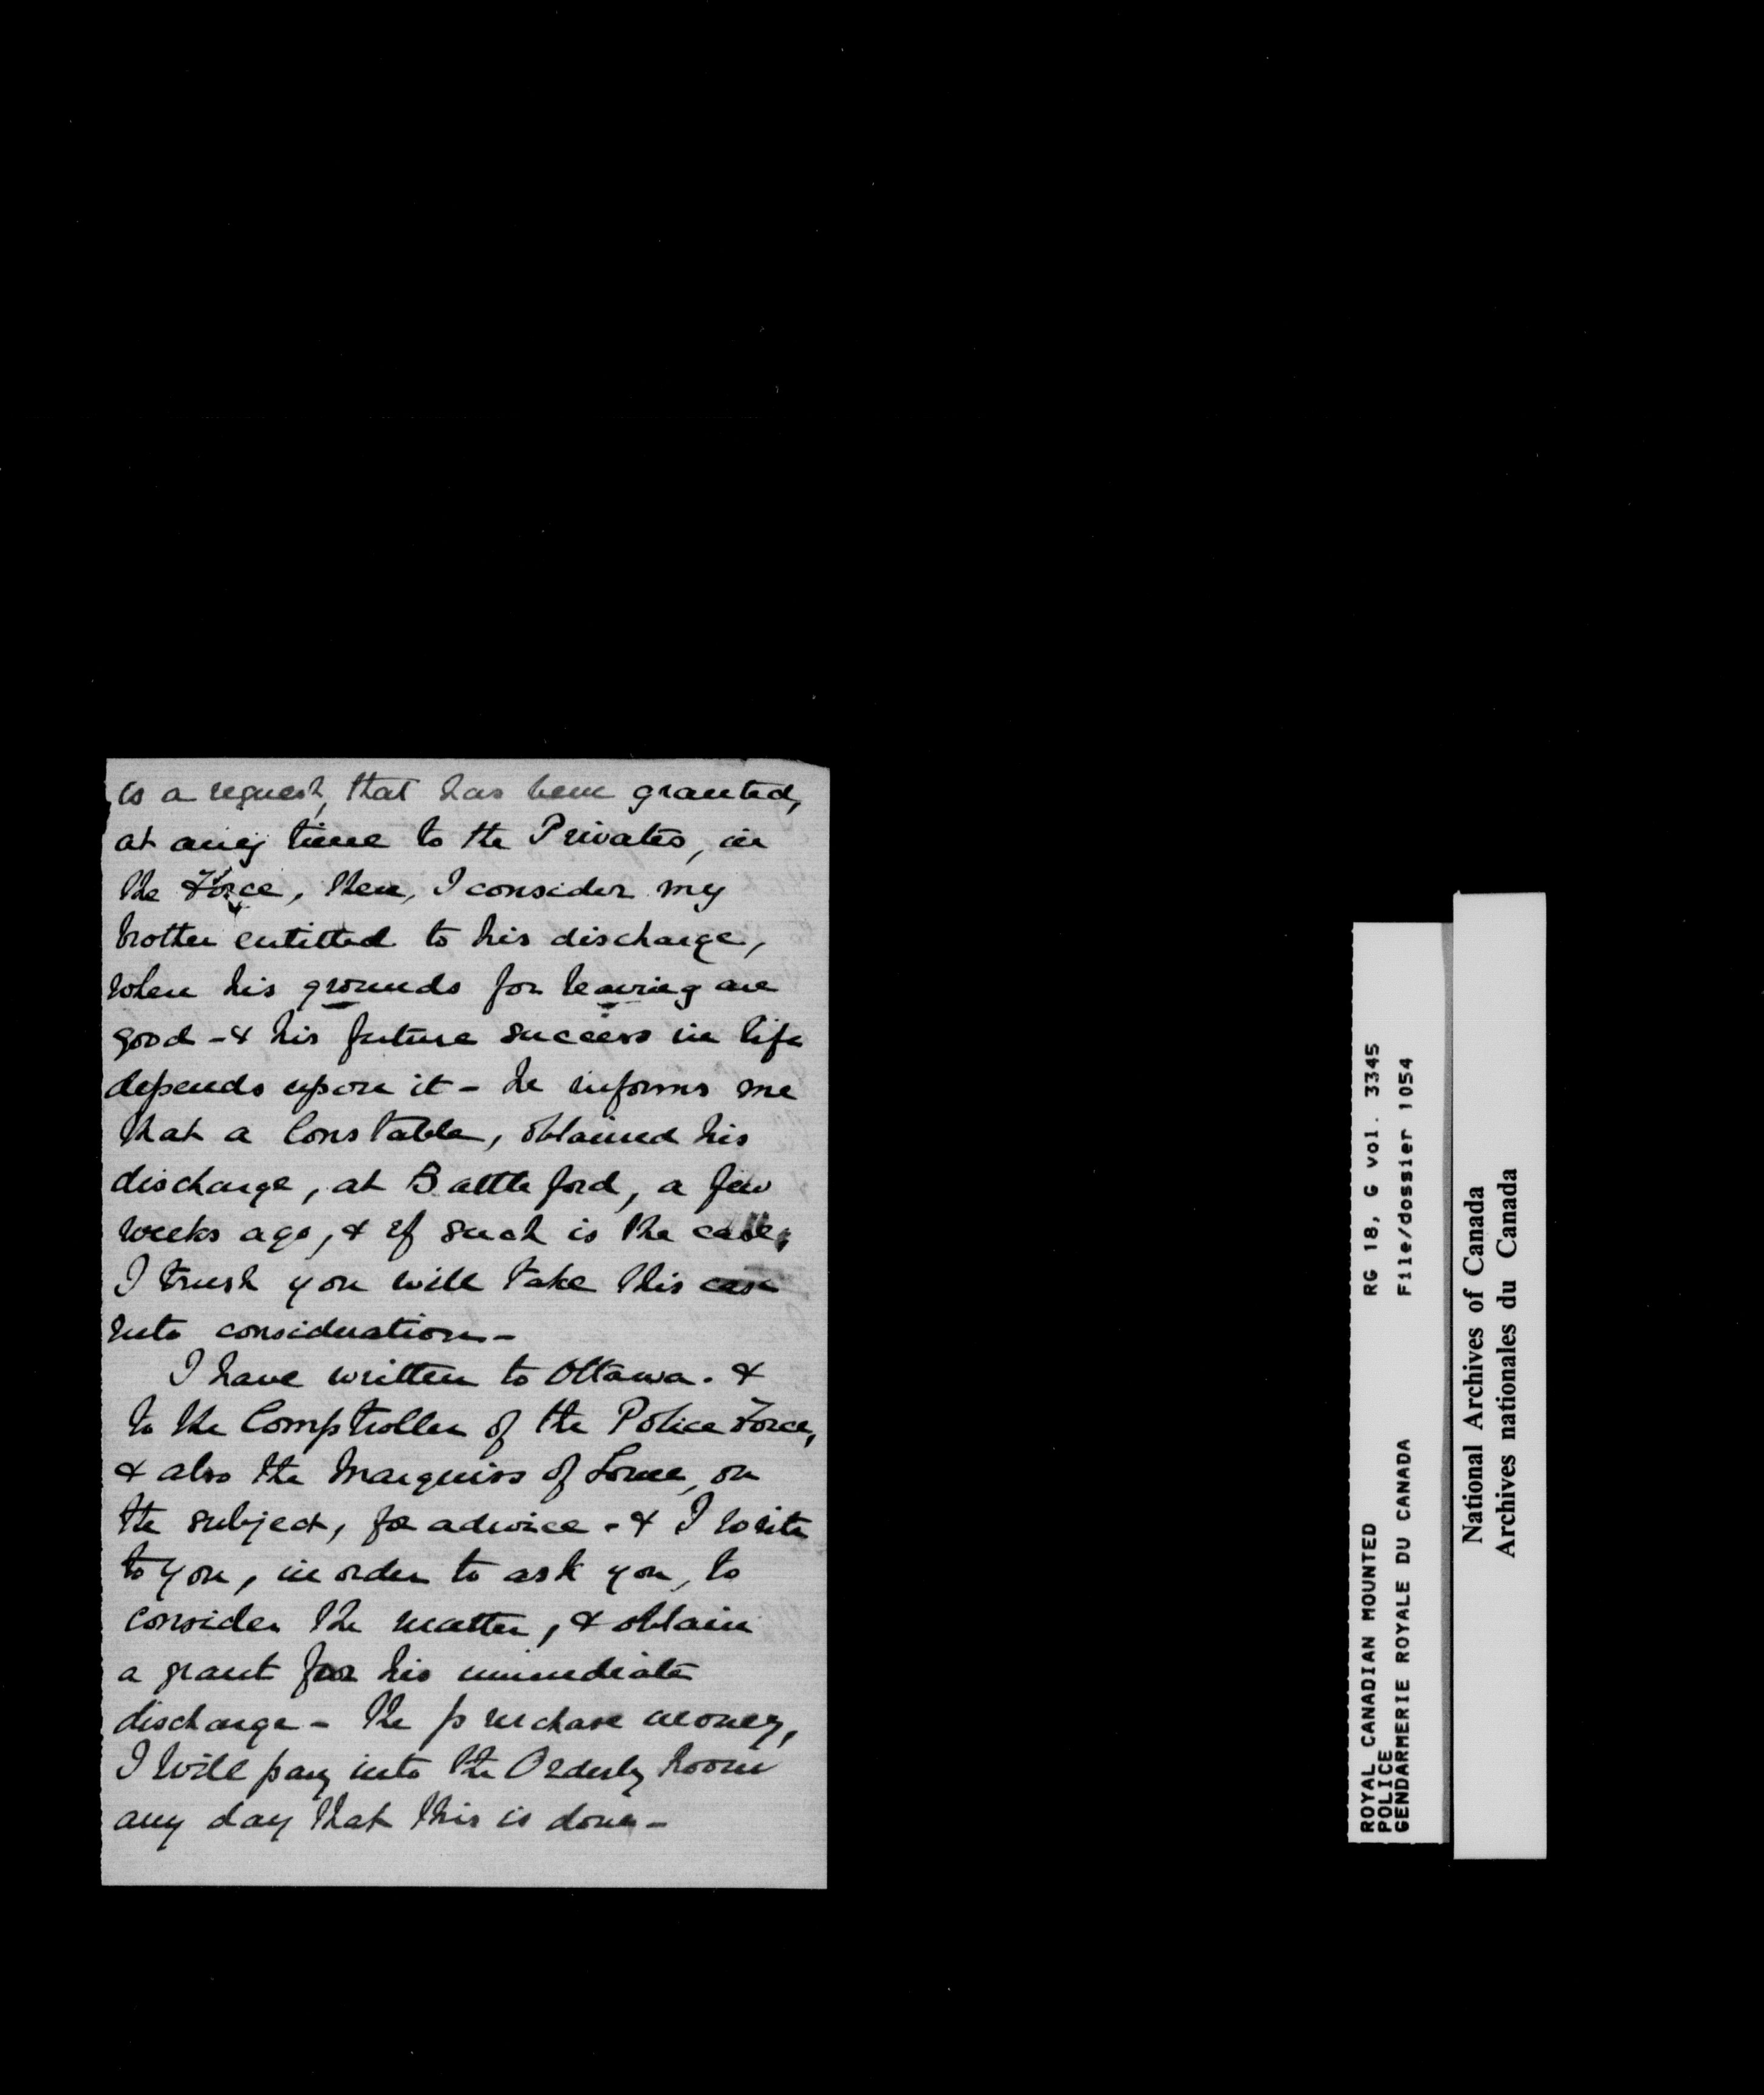 is a request, that has been granted,
at any time to the Privates, in
the Force, then, I consider my
brother entitled to his discharge,
when his grounds for leaving are
good - & his future success in life
depends upon it - he informs me
that a Constable, obtained his
discharge, at Battleford, a few
weeks ago, & if such is the case,
I trust you will take this case
into consideration -
I have written to Ottawa. &
to the Comptroller of the Police Force,
& also the Marquiss of Lorne, on
the subject, for advice - & I write
to you, in order to ask you, to
consider the matter, & obtain
a grant for his immediate
discharge - the purchase money,
I will pay into the Orderly Room
any day that this is done -
ROYAL CANADIAN MOUNTED RG 18, G vol. 3345
POLICE
GENDARMERIE ROYALE DU CANADA File/dossier 1054
National Archives of Canada
Archives nationales du Canada